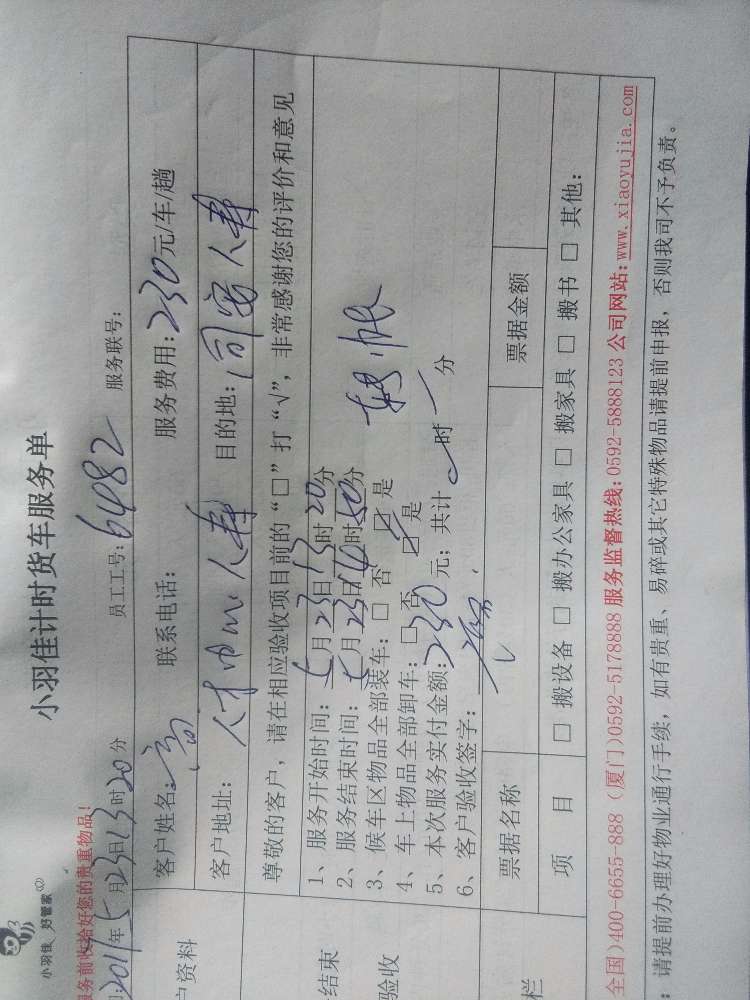 小羽佳 好管家
小羽佳计时货车服务单
服务前收拾好您的贵重物品!
年5月23日13时20分 员工工号:6482 服务联号:
户资料
客户姓名:高 联系电话: 服务费用:230元/车/趟
客户地址: 人寿 目的地:同安人寿
尊敬的客户,请在相应验收项目前的“□”打“√”,非常感谢您的评价和意见
结束
验收
1、服务开始时间:5月23日13时20分
2、服务结束时间:5月23日 时50分
3、候车区物品全部装车:□ 否 ☑ 是
4、车上物品全部卸车:□ 否 ☑ 是
5、本次服务实付金额:230元;共计 时 分
6、客户验收签字:
票据名称 票据金额
栏
项 目 □ 搬设备 □ 搬办公家具 □ 搬家具 □ 搬书 □ 其他:
全国)400-6655-888 (厦门)0592-5178888 服务监督热线:0592-5888123 公司网站:www.xiaoyujia.com
:请提前办理好物业通行手续,如有贵重、易碎或其它特殊物品请提前申报,否则我司不予负责。